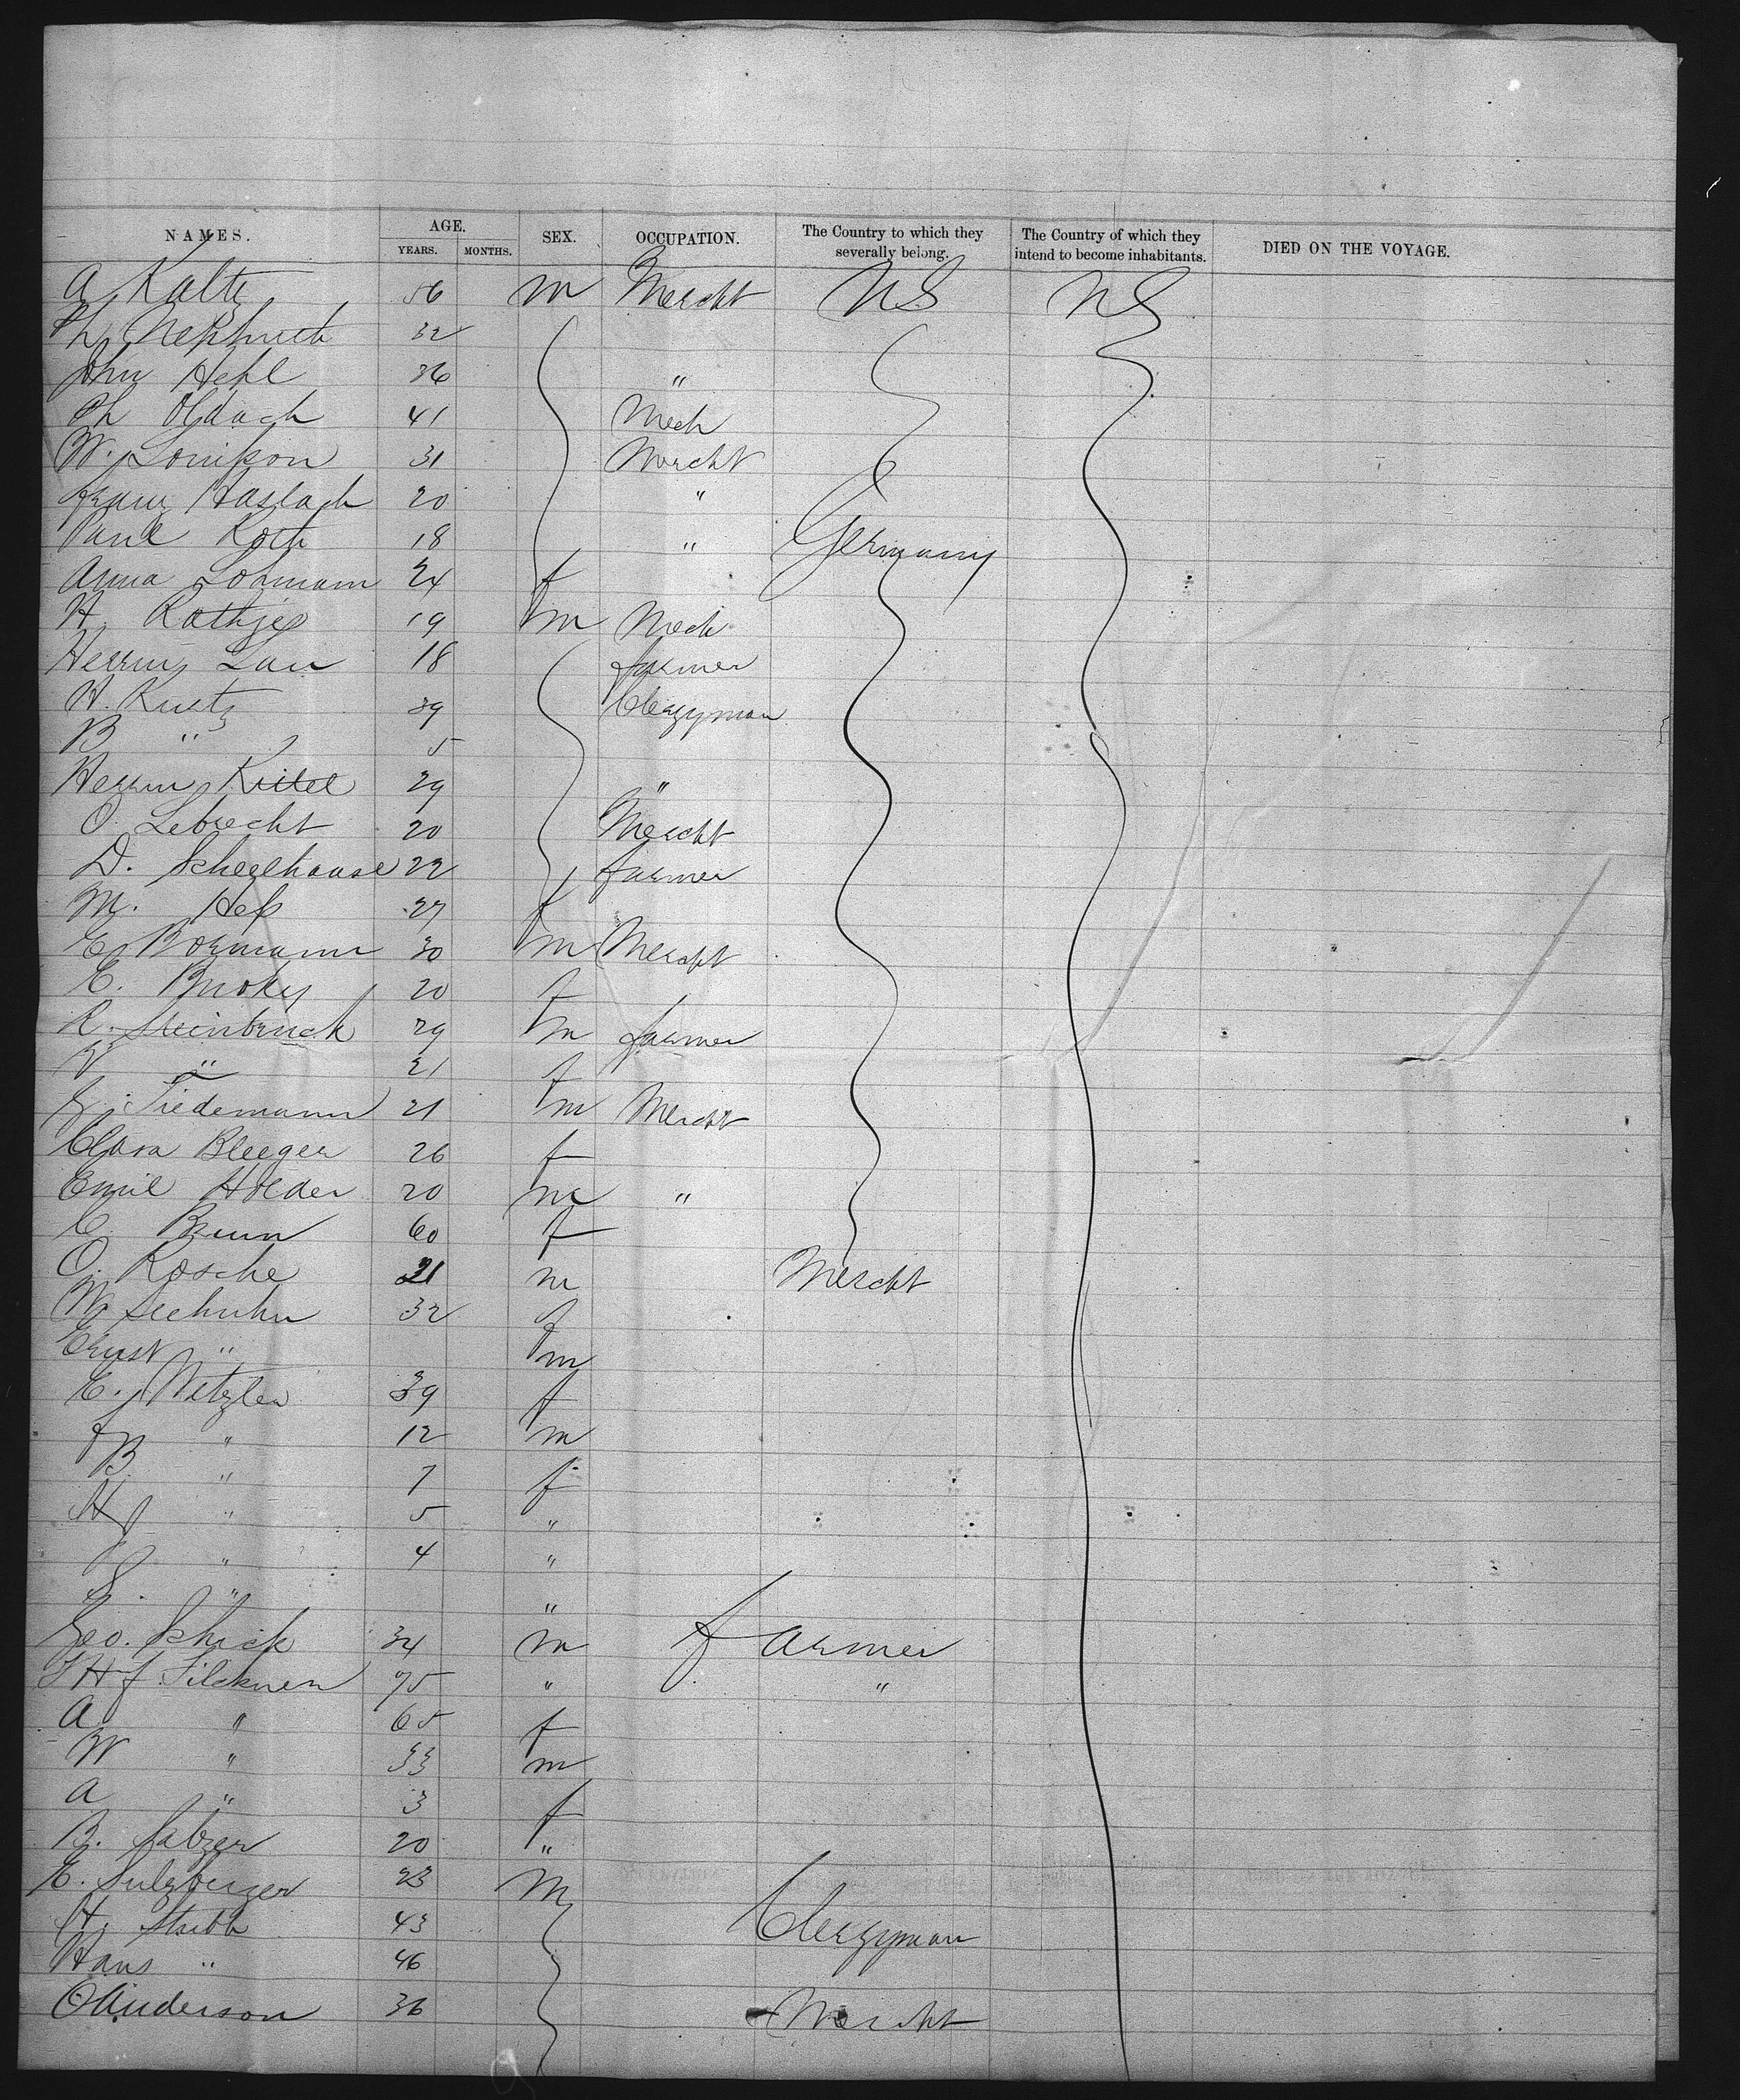 NAMES. AGE. YEARS. MONTHS. SEX. OCCUPATION. The Country to which they severally belong. The Country of which they intend to become inhabitants. DIED ON THE VOYAGE.
A Kalte 56 m Mercht US US
Ph 32
John Hehl 36 "
Ph Oldach 41 Mech
W. Louisson 31 Mercht
Franz Haslach 20 "
Paul Roth 18 " Germany
Anna Lohmann 24 f
H. Rathjes 19 m Mech
Herrm Lau 18 farmer
H. Kurtz 39 Clergyman
B " 5
Herrm Kittel 29 "
O. Lebrecht 20 Mercht
D. 22 farmer
M. Hess 27 f
E. Bormann 30 m Mercht
E. 20 f
R. Steinbruck 29 m farmer
V " 21 f
G. Tiedemann 21 m Mercht
Clara Bleeger 26 f
Emil Holder 20 m "
C. Brun 60 f
O. Rosche 21 m Mercht
W. Seehuhn 32 f
Ernst " m
E. Wetzler 39 f
J " 12 m
B. " 7 f
H " 5 "
J " 4 "
G. " "
Geo. Schick 34 m farmer
J H f Silckner 75 " "
A " 65 f
W " 33 m
A " 3 f
B. Salzer 20 "
E. Sulzberger 23 M
H. Stubb 43 Clergyman
Hans " 46
O Anderson 36 Mercht